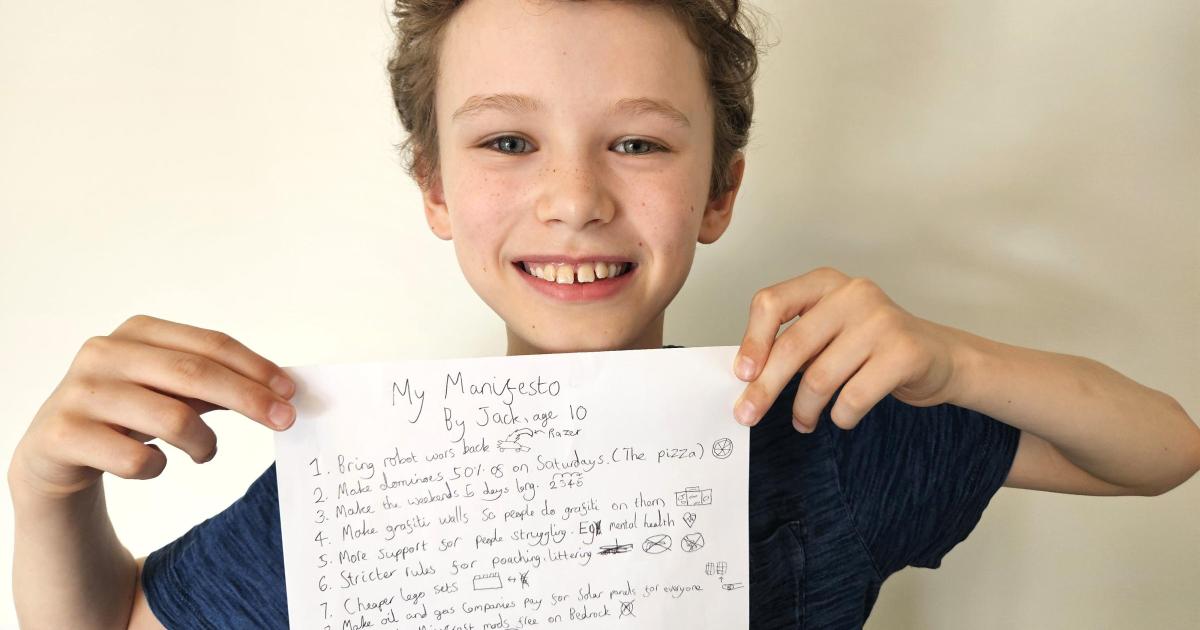 My Manifesto
By Jack, age 10
1. Bring robot wors back Razer
2. Make dominoes 50% of on Saturdays. (The pizza)
3. Make the weekends 5 days long. 2345
4. Make grafiti walls so people do grafiti on thom
5. More support for people struggling. Eg mental health
6. Stricter rules for poaching, littering
7. Cheaper lego sets
8. Make oil and gas companies pay for solar panels for everyone
mods free on Bedrock